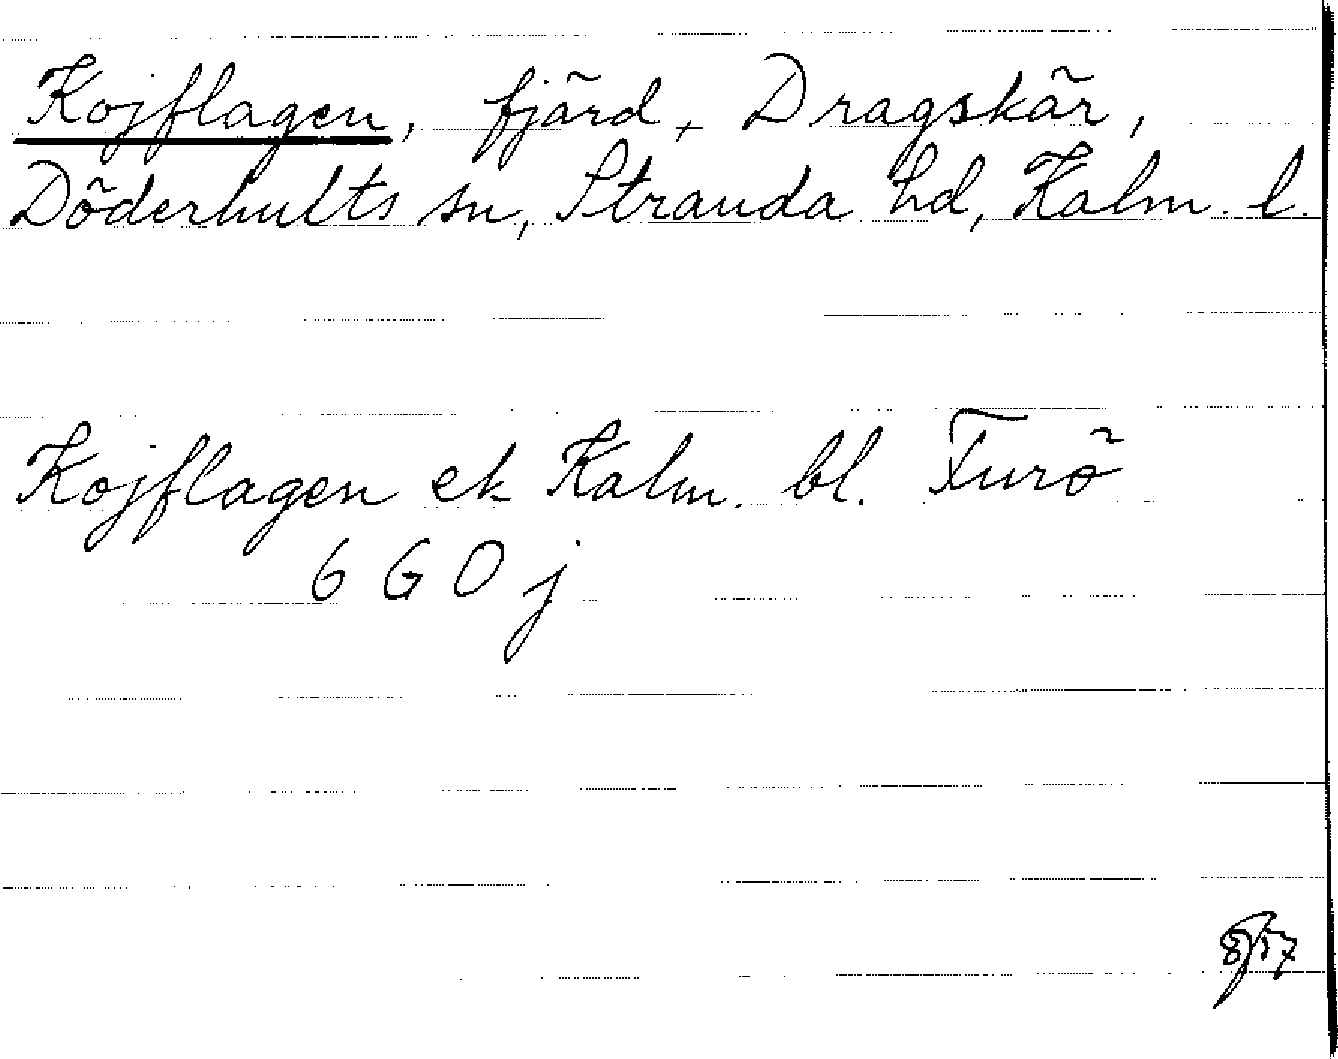 Kojflagen, fjärd, Dragskär,
Döderhults sn, Stranda hd, Kalm. l.
Kojflagen ek Kalm. bl. Furö
6 G O j